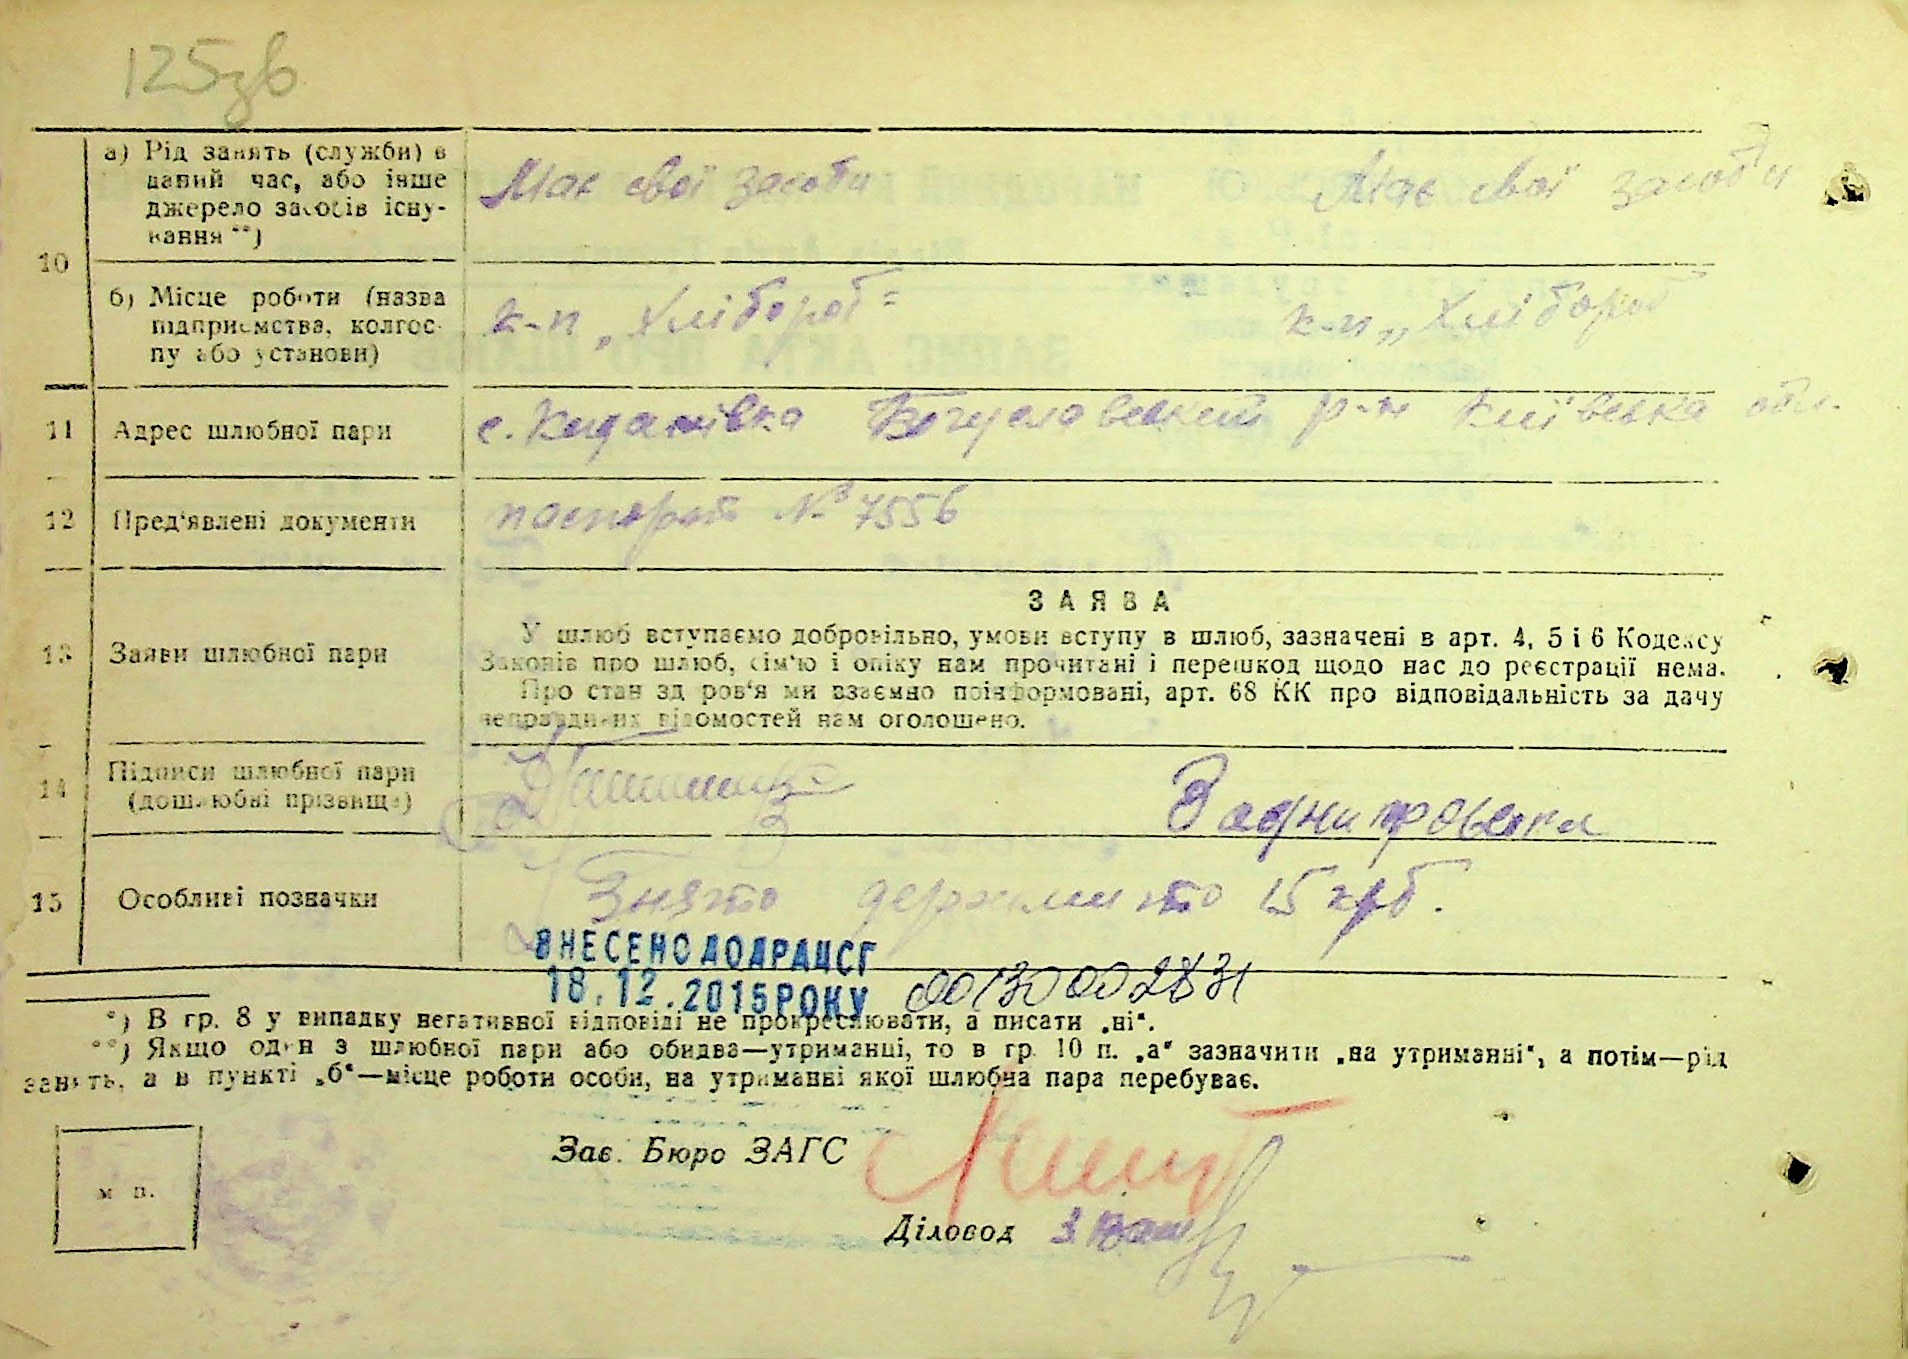 125зв
10
а) Рід занять (служби) в
даний час, або інше
джерело засобів існу-
вання **)
Має свої засоби Має свої засоби
б) Місце роботи (назва
підприємства, колгос-
пу або установи)
к-п „Хлібороб" к-п „Хлібороб
11 Адрес шлюбної пари
с. Киданівка Богуславський р-н Київська обл.
12 Пред'явлені документи
паспорт № 7556
13 Заяви шлюбної пари
ЗАЯВА
У шлюб вступаємо добровільно, умови вступу в шлюб, зазначені в арт. 4, 5 і 6 Кодексу
Законів про шлюб, сім'ю і опіку нам прочитані і перешкод щодо нас до реєстрації нема.
Про стан здоров'я ми взаємно поінформовані, арт. 68 КК про відповідальність за дачу
неправдивих відомостей нам оголошено.
14 Підписи шлюбної пари
(дошлюбні прізвища)
15 Особливі позначки
Знято держмито 15 крб.
ВНЕСЕНО ДО ДРАЦСГ
18.12.2015 РОКУ 00130002831
*) В гр. 8 у випадку негативної відповіді не прокреслювати, а писати „ні".
**) Якщо один з шлюбної пари або обидва—утриманці, то в гр. 10 п. „а" зазначити „на утриманні", а потім—рід
занять, а в пункті „б"—місце роботи особи, на утриманні якої шлюбна пара перебуває.
Зав. Бюро ЗАГС
м п.
Діловод